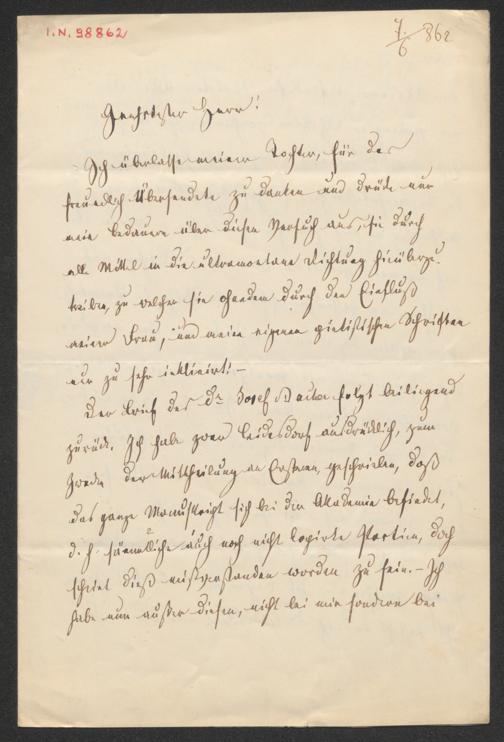 I.N. 98862
7/6 862
Geehrtester Herr!
Ich überlasse meiner Tochter, für das
freundlich Übersendete zu danken und drücke nur
mein Bedauern über diesen Versuch aus, sie durch
alle Mittel in die ultramontane Richtung hinüberzu-
treiben, zu welcher sie ohnedem durch den Einfluß
meiner Frau, und meine eigenen pietistischen Schriften
nur zu sehr inklinirt! –
Der Brief des Dr. Josef folgt beiliegend
zurück. Ich habe zwar Leidesdorf ausdrücklich, zum
Zwecke der Mittheilung an Ersteren, geschrieben, daß
das ganze Manuskript sich bei der Akademie befindet,
d. h. sämmtliche auch noch nicht kopirte Partien, doch
scheint dieß mißverstanden worden zu sein. – Ich
habe nun außer diesen, nicht bei mir sondern bei